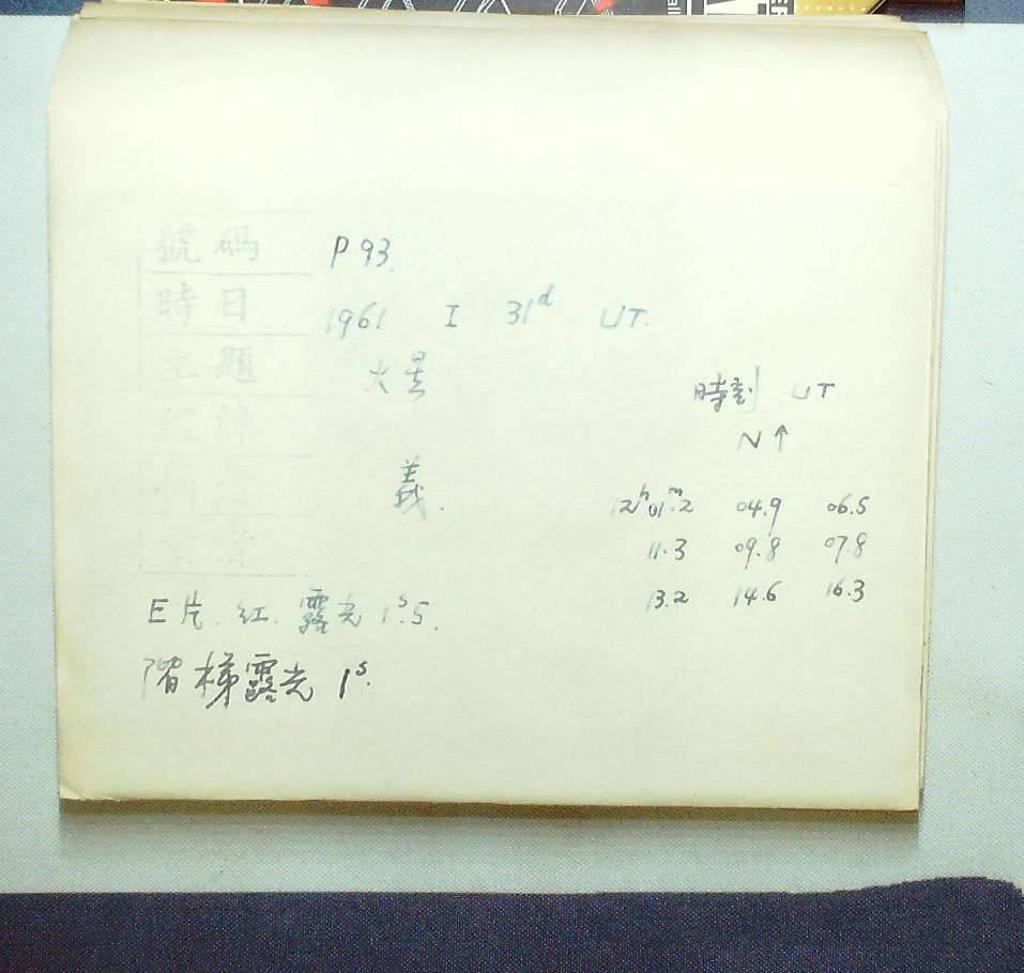 號碼 P 93.
時日 1961 I 31ᵈ UT.
主題 火星
經緯
義.
時刻 UT
N↑
12ʰ01ᵐ.2 04.9 06.5
11.3 09.8 07.8
13.2 14.6 16.3
E片. 紅. 露光 1ˢ.5.
階梯露光 1ˢ.